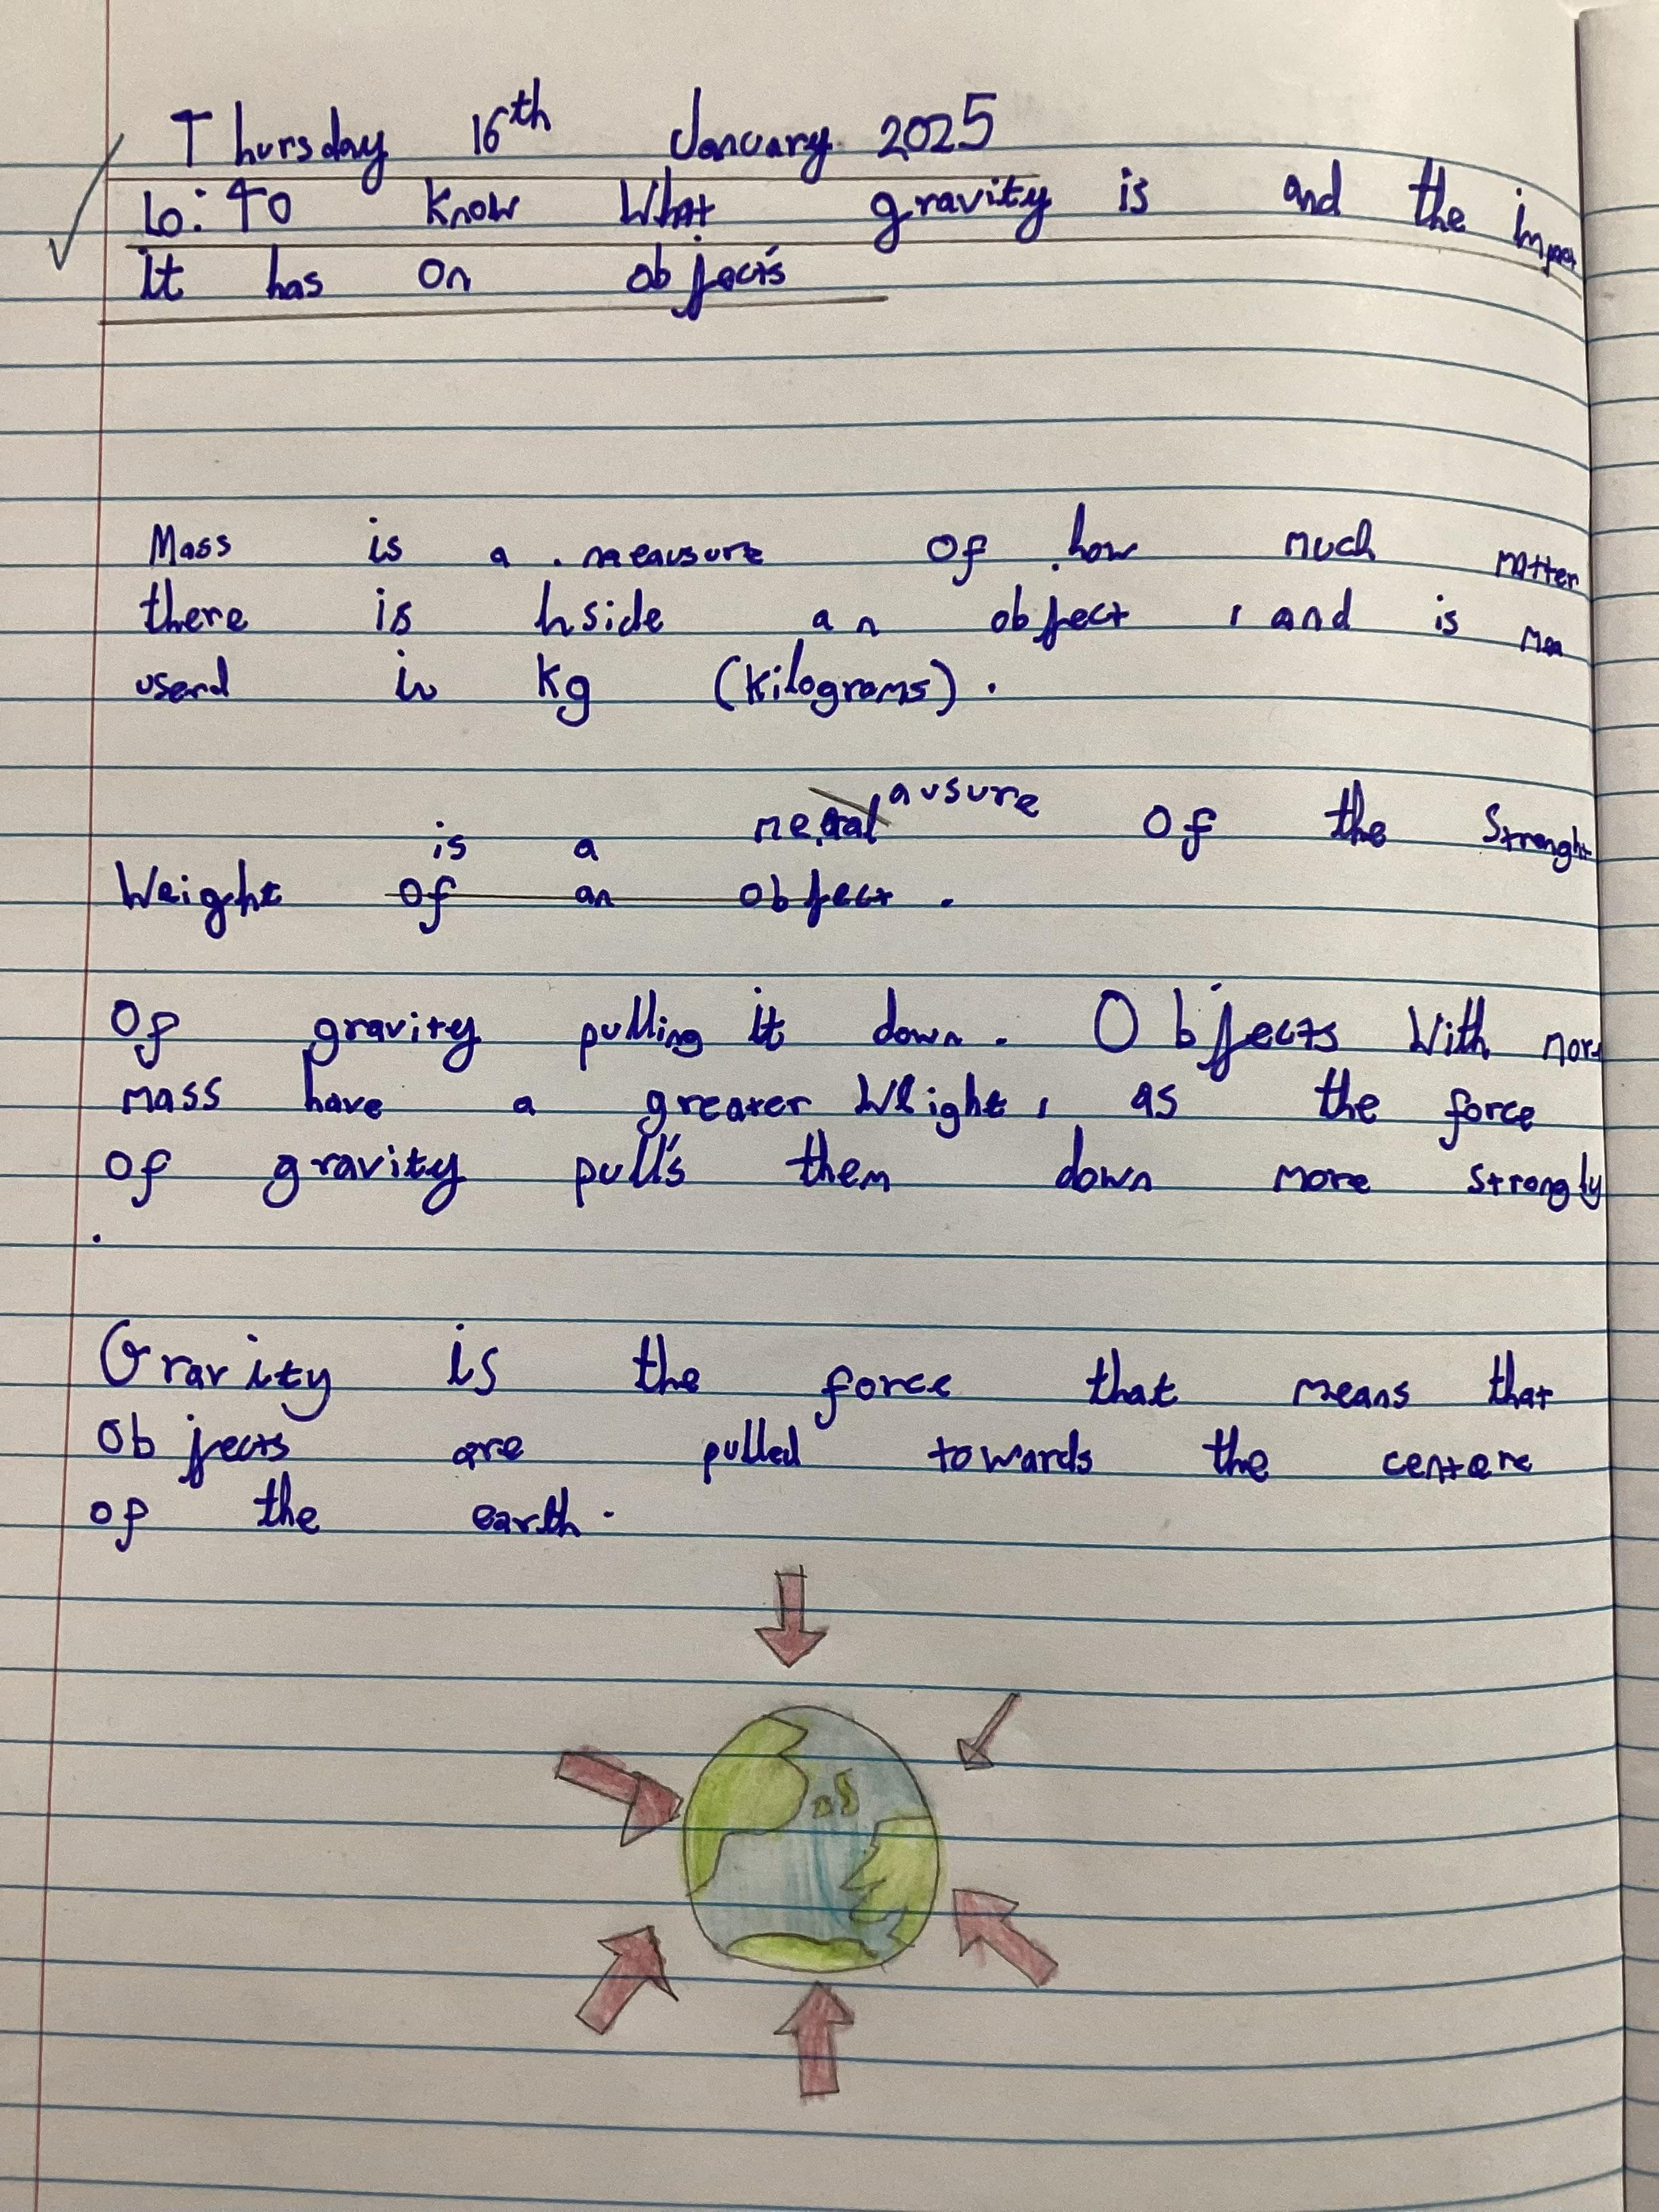 Thursday 16th January 2025
Lo: To know what gravity is and the impact
It has on objects
Mass is a meausure of how much matter
there is Inside an object, and is mea
userd in kg (kilograms).
is a meausure of the Strenght
Weight of an object.
Of gravity pulling it down. Objects With more
mass have a greater Weight, as the force
Of gravity pull's them down more strongly
.
Gravity is the force that means that
Objects are pulled towards the centere
of the earth.